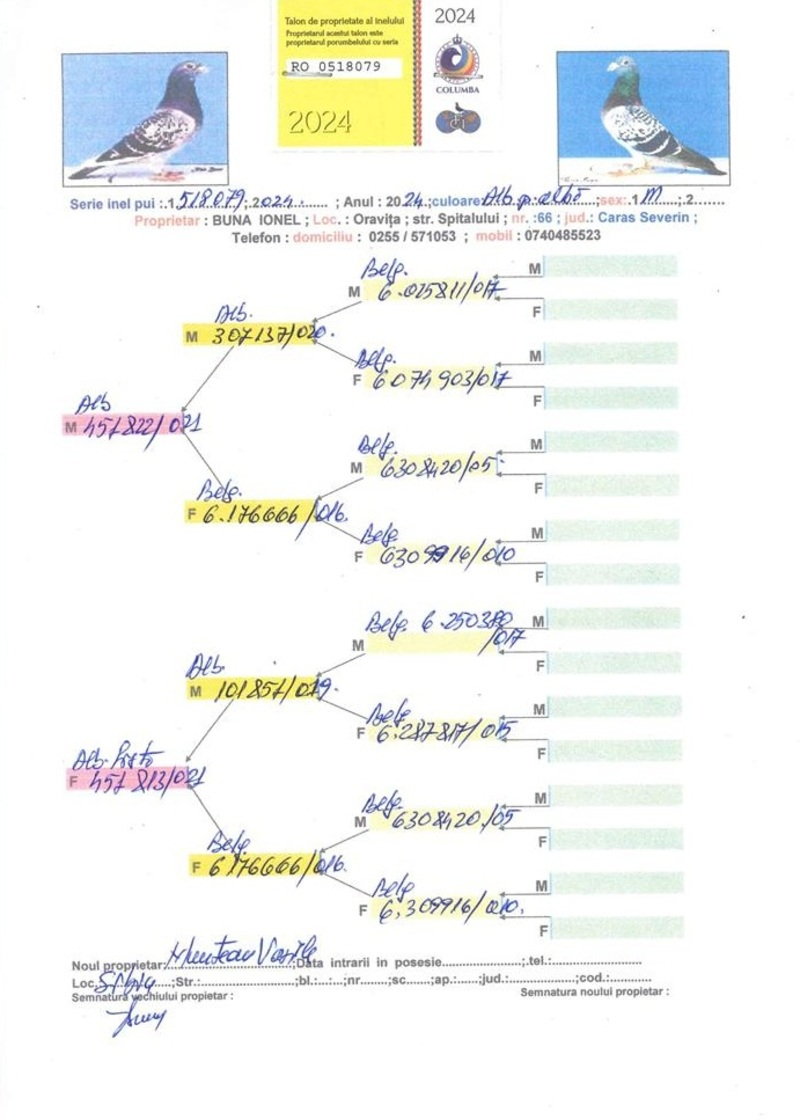 Talon de proprietate al inelului
Proprietarul acestui talon este
proprietarul porumbelului cu seria
RO 0518079
2024
2024
COLUMBA
FCI
Serie inel pui :.1.518079.; 2024....... ; Anul : 2024.;culoare: Alb p. albă..;sex:.1.M....;2.......
Proprietar : BUNA IONEL ; Loc. : Oraviţa ; str. Spitalului ; nr. :66 ; jud.: Caras Severin ;
Telefon : domiciliu : 0255 / 571053 ; mobil : 0740485523
Belg.
M 6.025811/017
M
F
Alb.
M 307137/020.
Belg.
F 6074903/017
M
F
Alb
M 457822/021
Belg.
M 6308420/05
M
F
Belg.
F 6.176666/016.
Belg.
F 6309916/010
M
F
Belg. 6.250380
/017
M
M
F
Alb.
M 101857/019.
Belg
F 6.287817/015
M
F
Alb-
F 457813/021
Belg.
M 6308420/05
M
F
Belg.
F 6176666/016.
Belg
F 6.309916/010.
M
F
Noul proprietar: Munteau Vasile ;Data intrarii in posesie..................;.tel.:....................
Loc. Sibiu ;Str.:........................;bl.:...:..;nr.......;sc......;ap.:.....;jud.:...............;cod.:..........
Semnatura vechiului propietar :
Semnatura noului propietar :